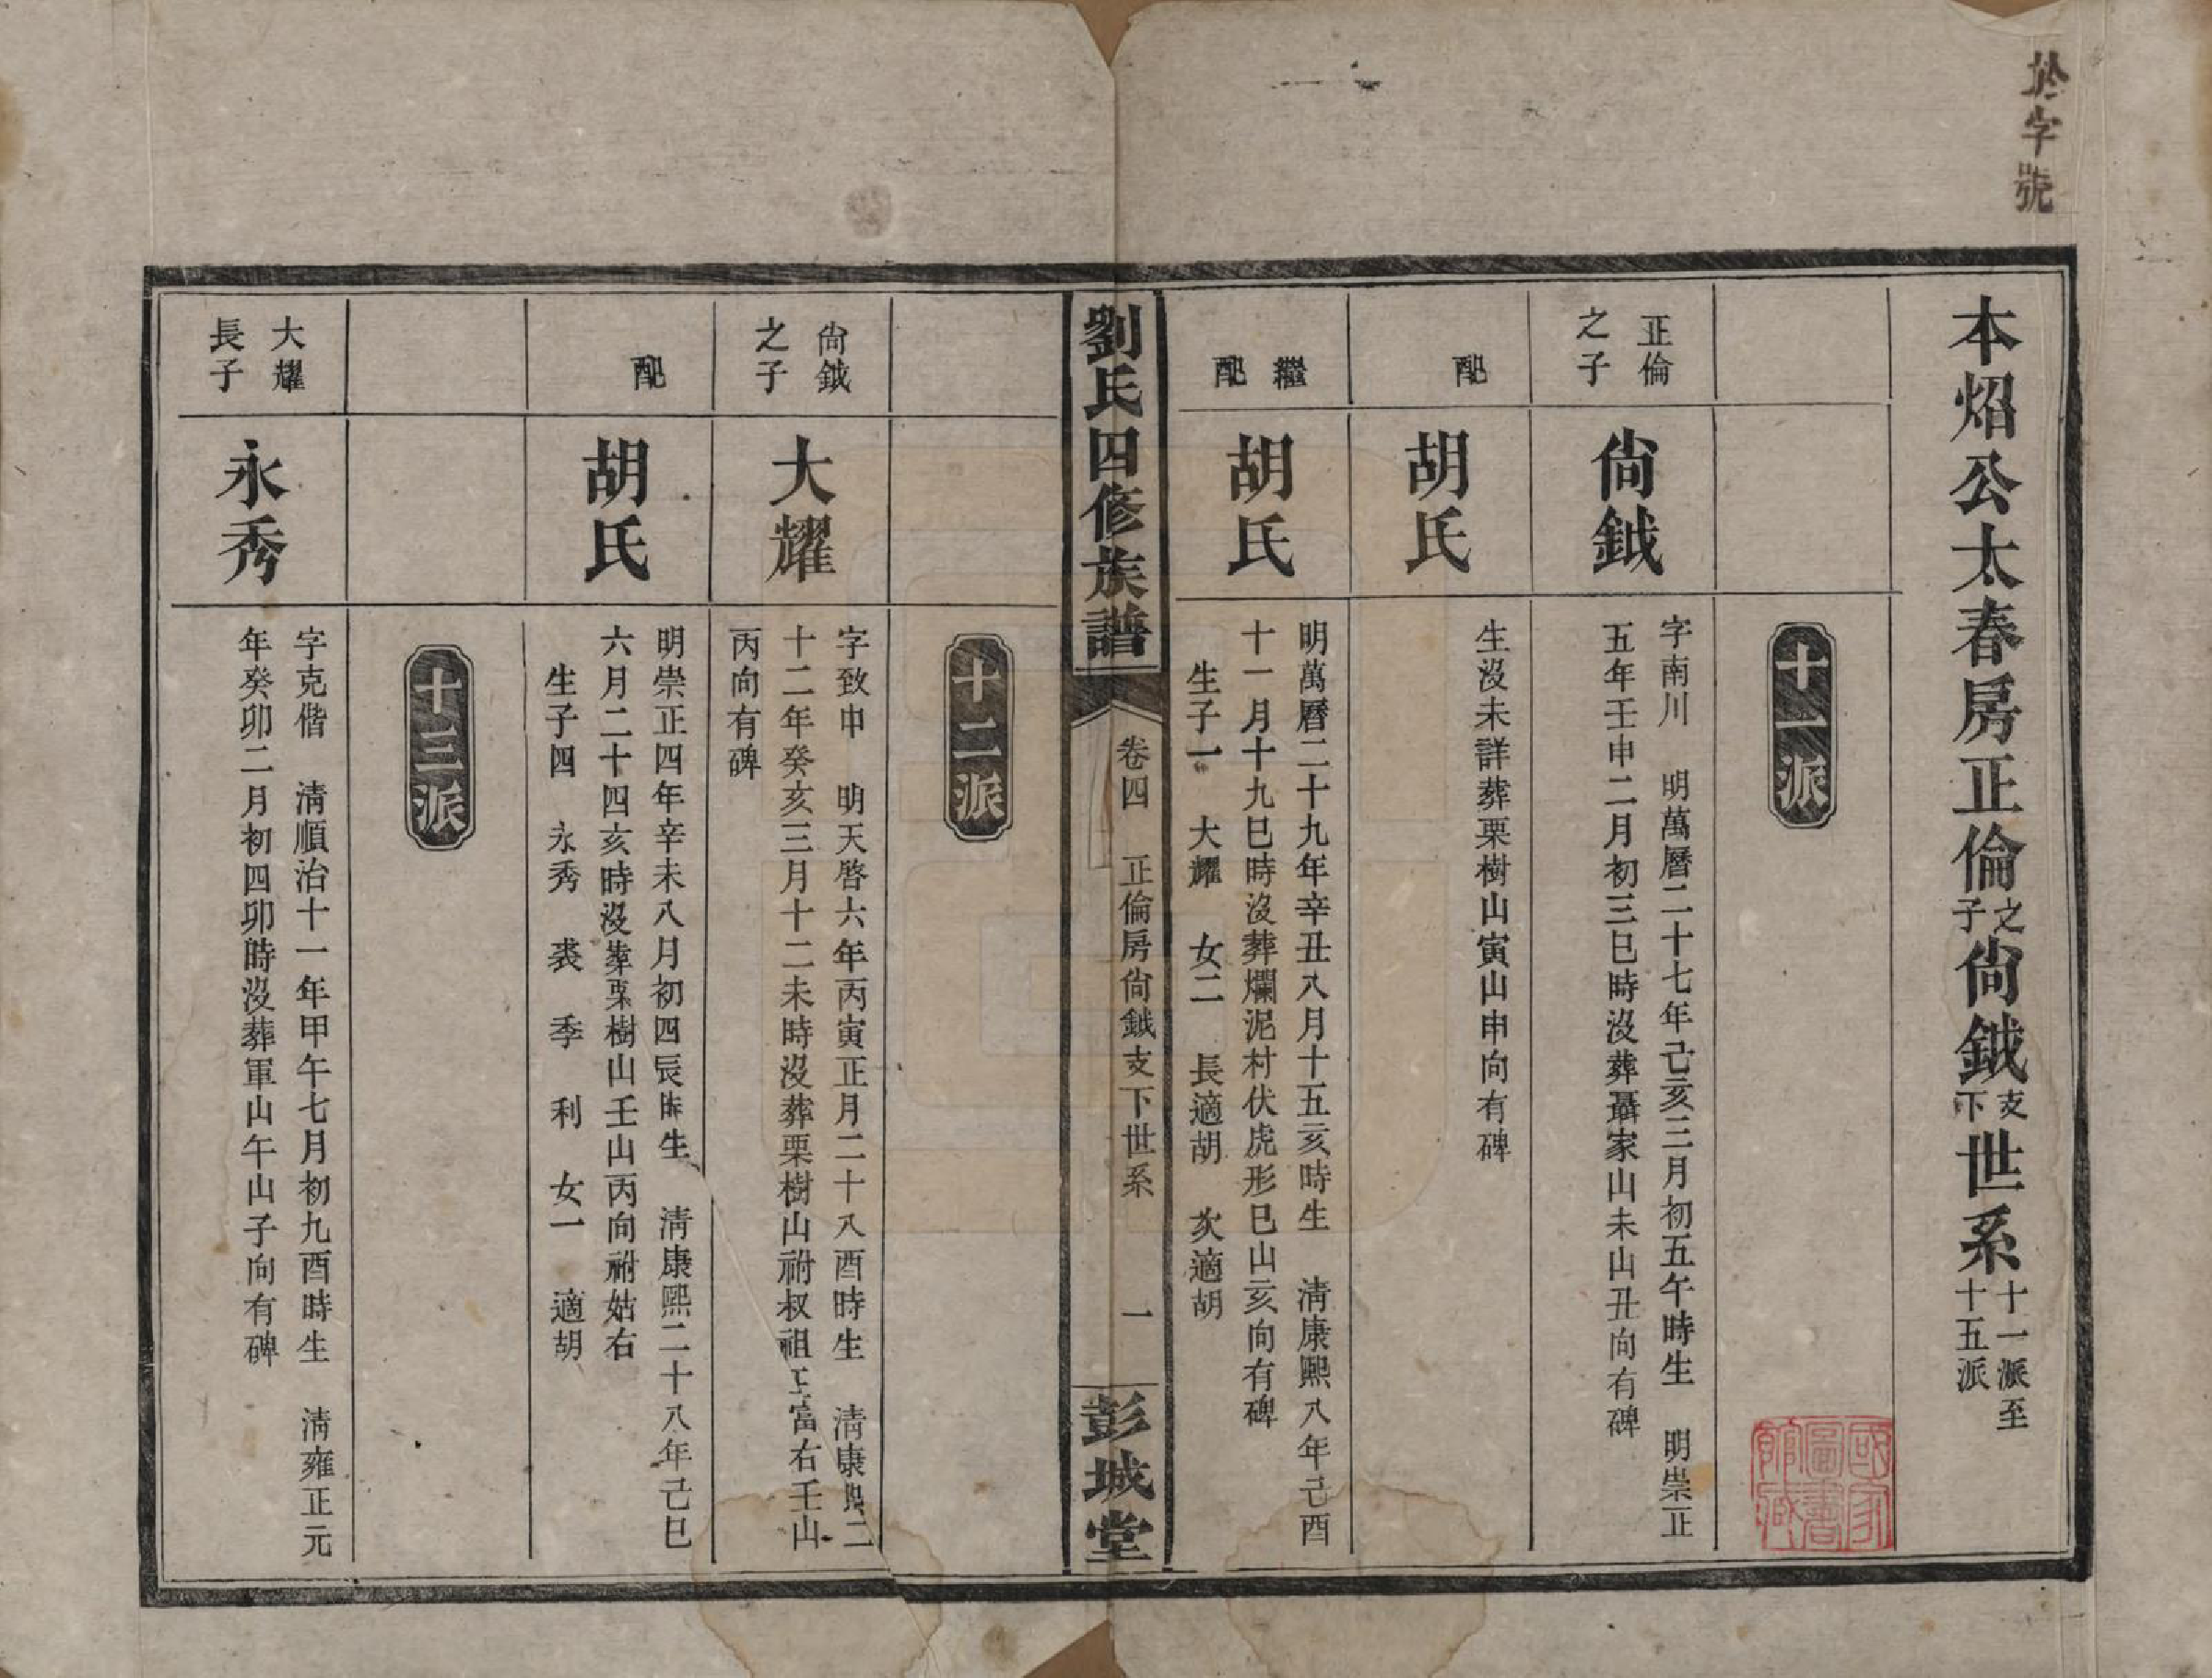 於字號
本炤公太春房正倫之子尙鉞支下世系十一派至十五派
國家圖書館藏
十一派
正倫之子
尙鉞
字南川　明萬曆二十七年己亥三月初五午時生　明崇正
五年壬申二月初三巳時沒葬聶家山未山丑向有碑
配
胡氏
生沒未詳葬栗樹山寅山申向有碑
繼配
胡氏
明萬曆二十九年辛丑八月十五亥時生　淸康熙八年己酉
十一月十九巳時沒葬爛泥村伏虎形巳山亥向有碑
生子一　大耀　女二　長適胡　次適胡
劉氏四修族譜
卷四　正倫房尙鉞支下世系　一
彭城堂
十二派
尙鉞之子
大耀
字致中　明天啓六年丙寅正月二十八酉時生　淸康熙二
十二年癸亥三月十二未時沒葬栗樹山祔叔祖正富右壬山
丙向有碑
配
胡氏
明崇正四年辛未八月初四辰時生　淸康熙二十八年己巳
六月二十四亥時沒葬栗樹山壬山丙向祔姑右
生子四　永秀　裘　季　利　女一　適胡
十三派
大耀長子
永秀
字克偕　淸順治十一年甲午七月初九酉時生　淸雍正元
年癸卯二月初四卯時沒葬軍山午山子向有碑